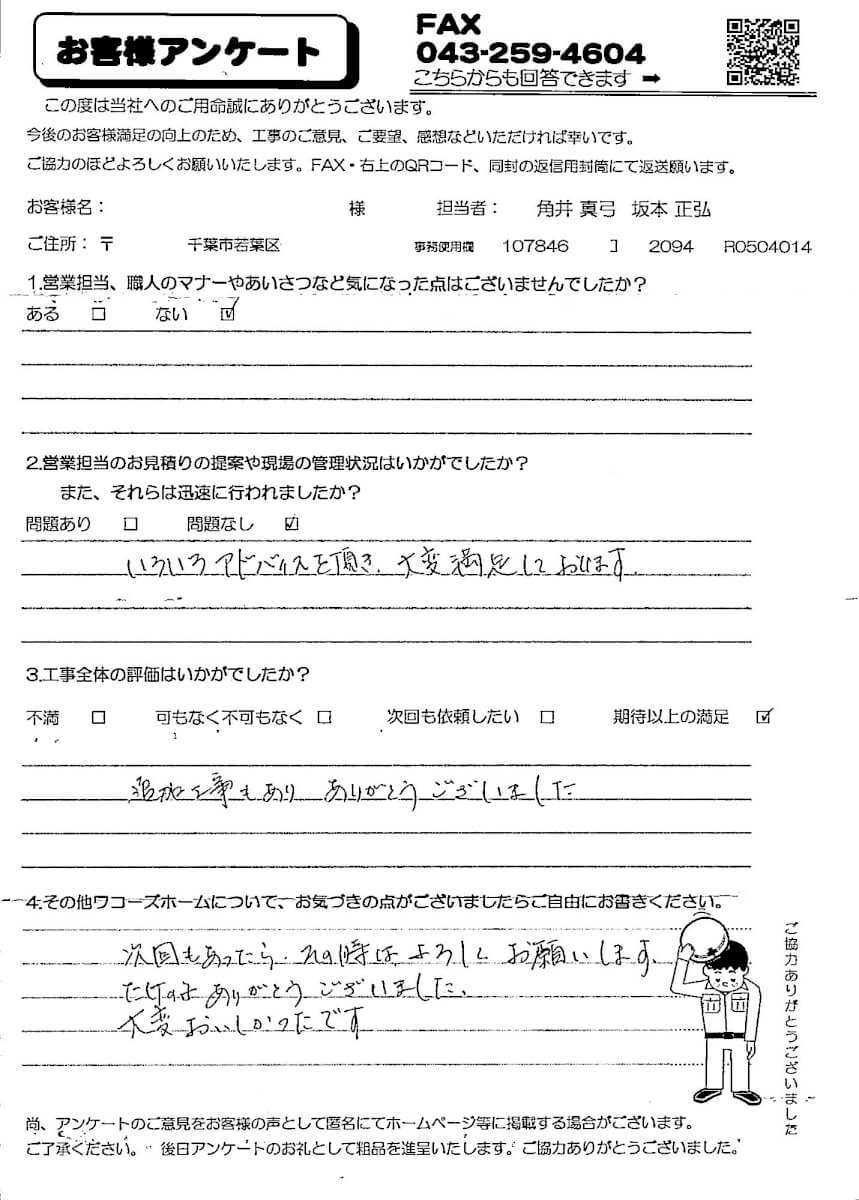 お客様アンケート
FAX
043-259-4604
こちらからも回答できます ➡
この度は当社へのご用命誠にありがとうございます。
今後のお客様満足の向上のため、工事のご意見、ご要望、感想などいただければ幸いです。
ご協力のほどよろしくお願いいたします。FAX・右上のQRコード、同封の返信用封筒にて返送願います。
お客様名： 様 担当者： 角井 真弓 坂本 正弘
ご住所：〒 千葉市若葉区 事務使用欄 107846 コ 2094 R0504014
1.営業担当、職人のマナーやあいさつなど気になった点はございませんでしたか？
ある □ ない ☑
2.営業担当のお見積りの提案や現場の管理状況はいかがでしたか？
また、それらは迅速に行われましたか？
問題あり □ 問題なし ☑
いろいろアドバイスを頂き、大変満足しております。
3.工事全体の評価はいかがでしたか？
不満 □ 可もなく不可もなく □ 次回も依頼したい □ 期待以上の満足 ☑
追加工事もあり ありがとうございました
4.その他ワコーズホームについて、お気づきの点がございましたらご自由にお書きください。
次回もあったら、その時はよろしくお願いします、
たけのこありがとうございました、
大変おいしかったです
ご協力ありがとうございました
尚、アンケートのご意見をお客様の声として匿名にてホームページ等に掲載する場合がございます。
ご了承ください。 後日アンケートのお礼として粗品を進呈いたします。ご協力ありがとうございました。